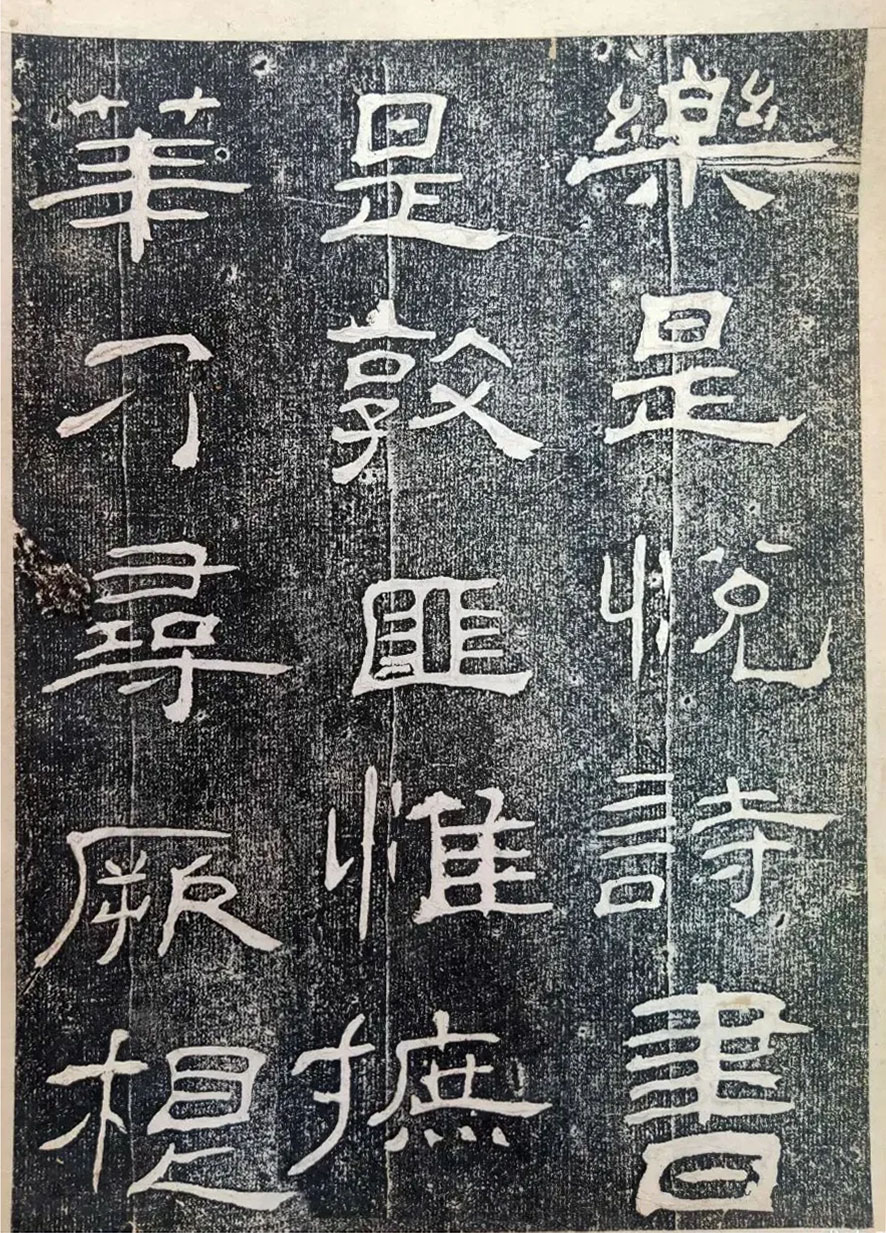 樂是悅詩書
是敦匪惟摭
華乃尋厥根